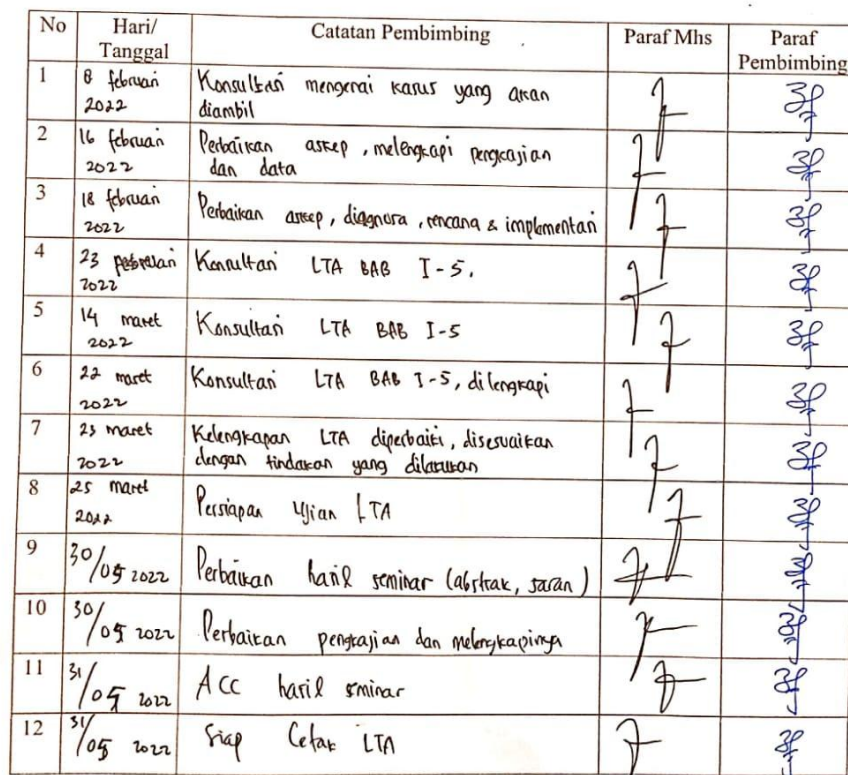 No Hari/ Catatan Pembimbing Paraf Mhs Paraf
Tanggal Pembimbing
1 8 februari Konsultasi mengenai kasus yang akan
2022 diambil
2 16 februari Perbaikan askep, melengkapi pengkajian
2022 dan data
3 18 februari Perbaikan askep, diagnosa, rencana & implementasi
2022
4 23 februari Konsultasi LTA BAB I-5.
2022
5 14 maret Konsultasi LTA BAB I-5
2022
6 22 maret Konsultasi LTA BAB I-5, dilengkapi
2022
7 23 maret Kelengkapan LTA diperbaiki, disesuaikan
2022 dengan tindakan yang dilakukan
8 25 maret Persiapan Ujian LTA
2022
9 30/05 2022 Perbaikan hasil seminar (abstrak, saran)
10 30/05 2022 Perbaikan pengkajian dan melengkapinya
11 31/05 2022 ACC hasil seminar
12 31/05 2022 Siap Cetak LTA